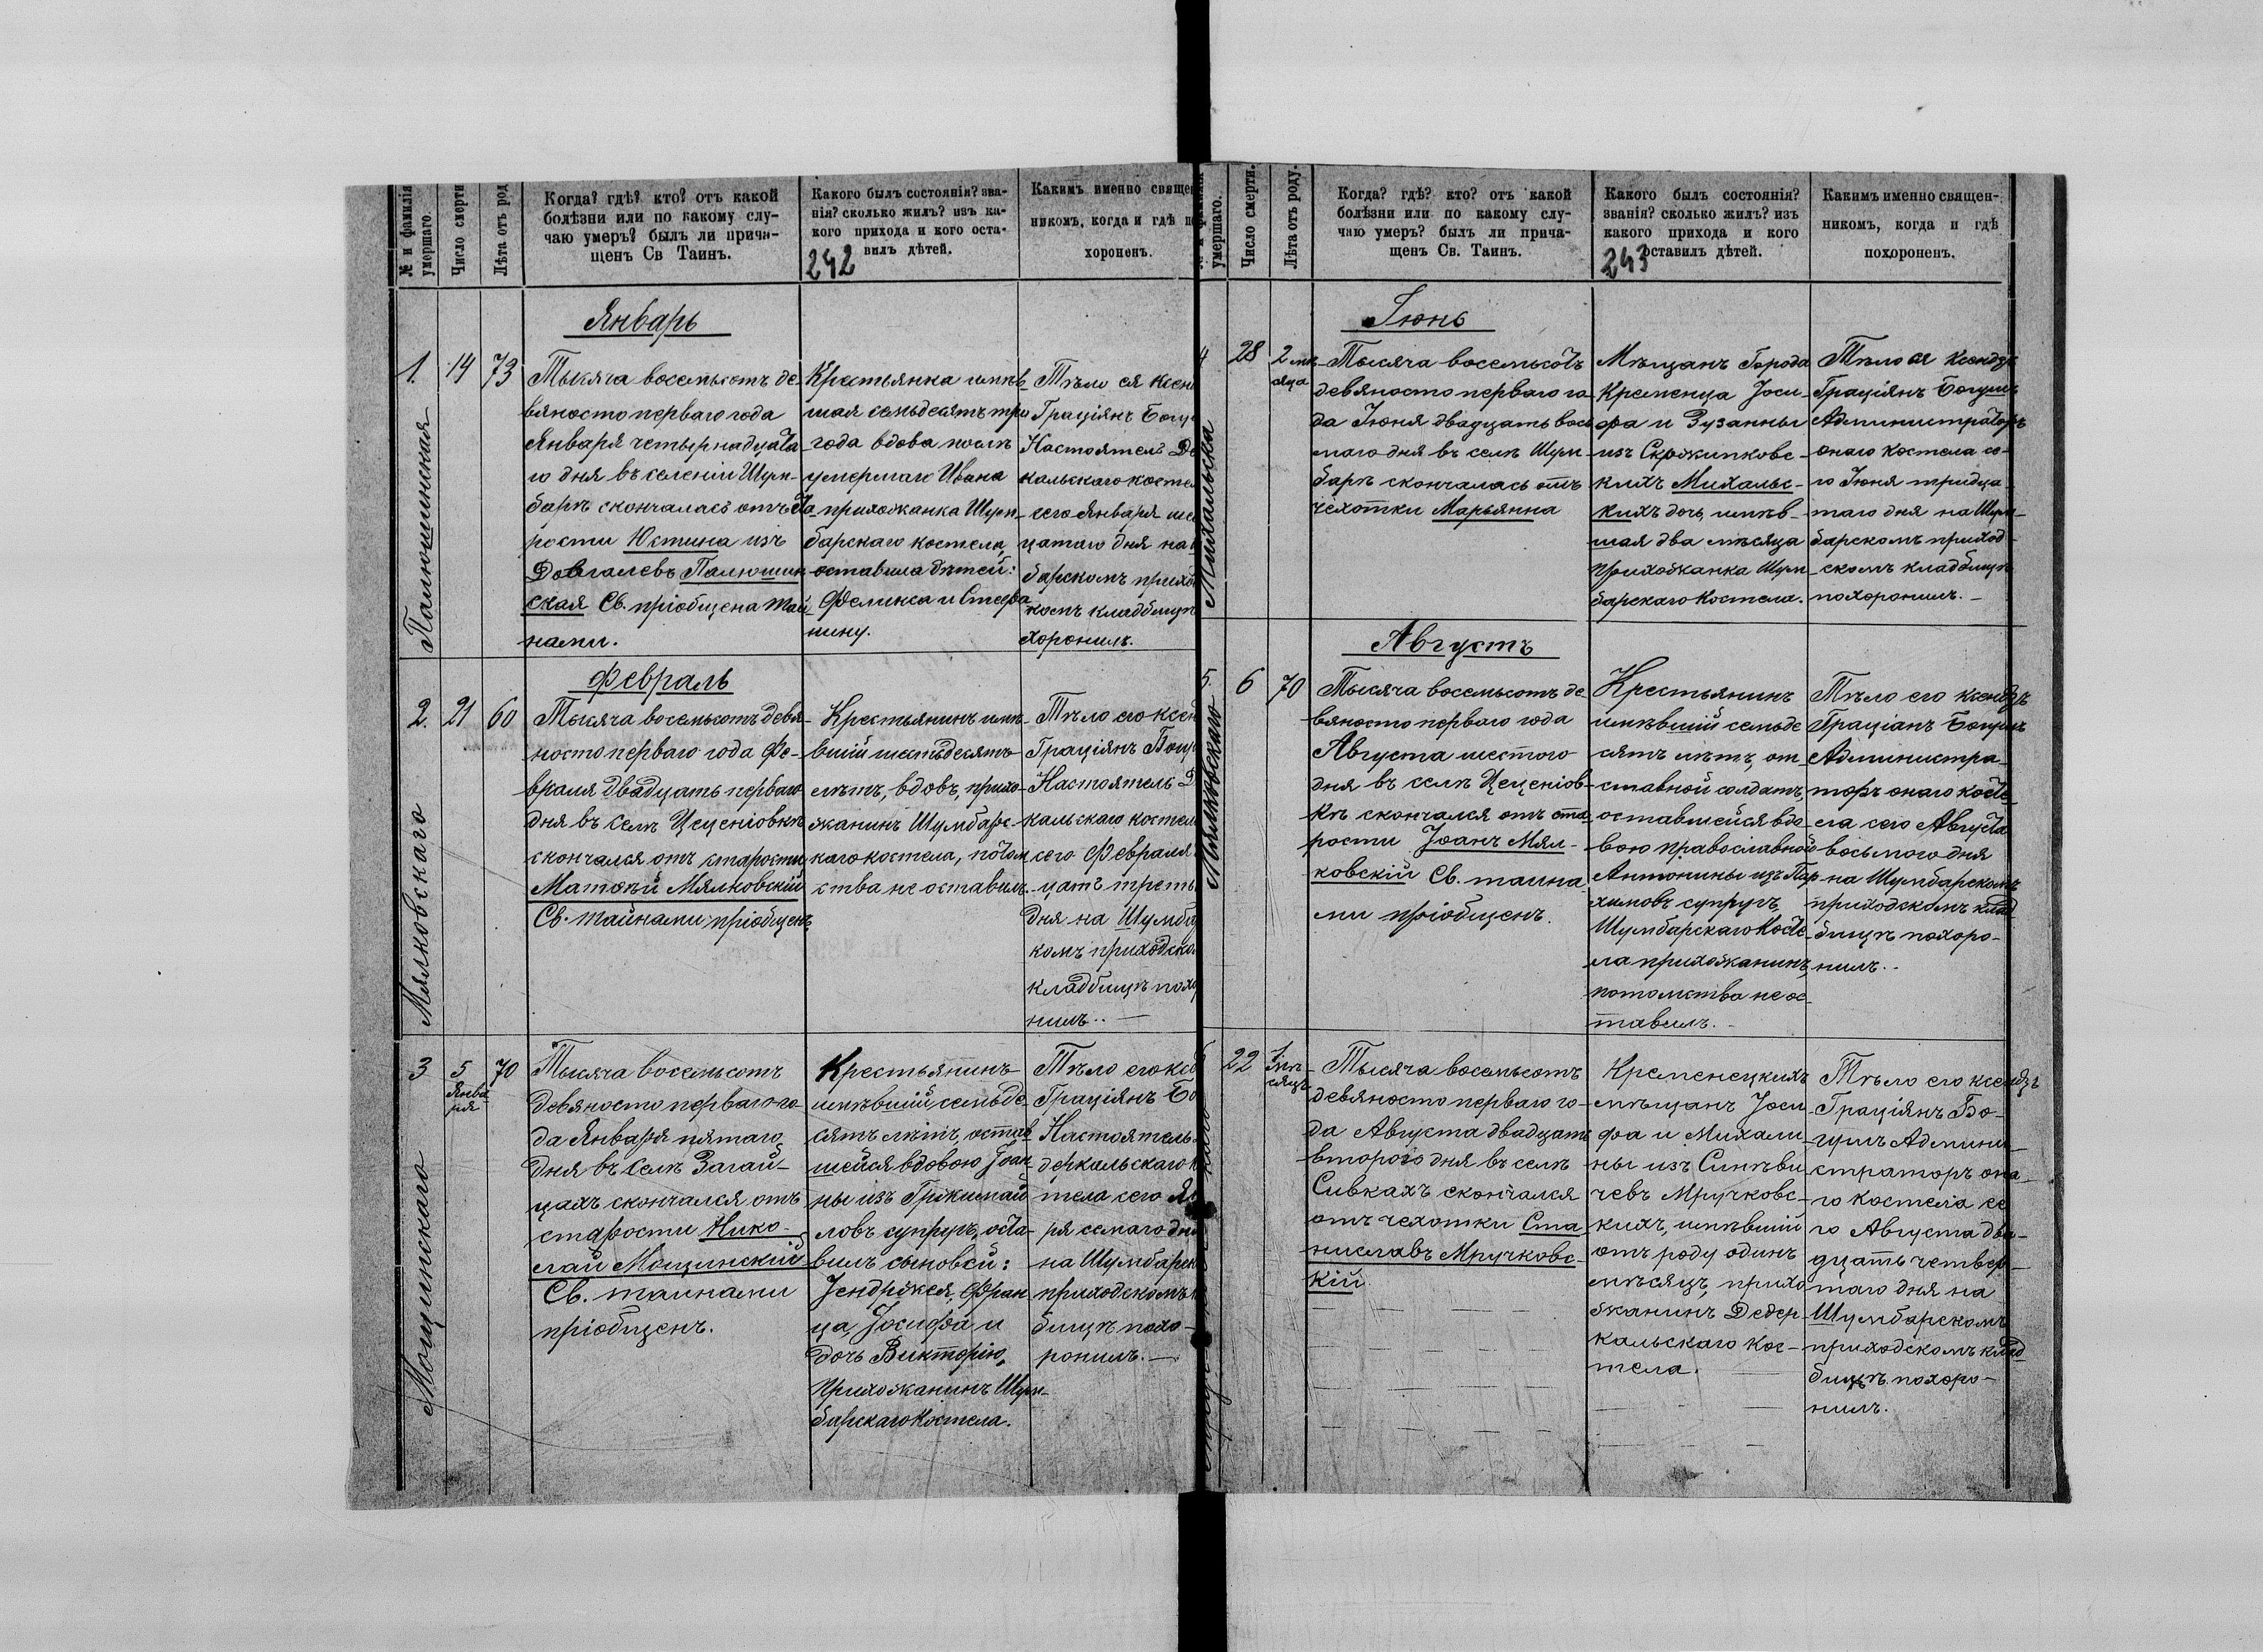 № и фамилія умершаго.
Число смерти
Лѣта отъ род
Когда? гдѣ? кто? отъ какой
болѣзни или по какому слу-
чаю умеръ? былъ ли прича-
щенъ Св Таинъ.
Какого былъ состоянія? зва-
нія? сколько жилъ? изъ ка-
кого прихода и кого оста-
вилъ дѣтей.
242
Какимъ именно священ
никомъ, когда и гдѣ по
хороненъ.
Январь
1.
Палюшинская
14
73
Тысяча восемьсотъ де-
вяносто перваго года
Января четырнадцата
го дня въ селеніи Шум-
барѣ скончалась отъ ста
рости Юстина изъ
Довгалевъ Палюшин
ская Св. пріобщена тай
нами.
Крестьянка имѣв
шая семьдесятъ три
года вдова послѣ
умершаго Ивана
прихожанка Шум-
барскаго костела,
оставила дѣтей:
Феликса и Стефа
нину.
Тѣло ея ксен
Граціянъ Богу
Настоятель Де
кальскаго косте
сего Января шес
цатаго дня на
барскомъ прихо
комъ кладбищѣ
хоронилъ.
Февраль
2.
Мялковскаго
21
60
Тысяча восемьсотъ девя-
носто перваго года Фе-
враля двадцать перваго
дня въ селѣ Цеценіовкѣ
скончался отъ старости
Матѳѣй Мялковскій
Св. тайнами пріобщенъ
Крестьянинъ имѣ-
вшій шестьдесятъ
лѣтъ, вдовъ, прихо-
жанинъ Шумбарс-
каго костела, потом
ства не оставилъ.
Тѣло его ксен
Граціянъ Богу
Настоятель Д
кальскаго костел
сего Февраля
цать треть
дня на Шумба
комъ приходско
кладбищѣ похо
нилъ..—
3
Мощинскаго
5
Янва
ря
70
Тысяча восемьсотъ
девяносто перваго го-
да Января пятаго
дня въ селѣ Загай-
цахъ скончался отъ
старости Нико-
лай Мощинскій
Св. таинами
пріобщенъ.
Крестьянинъ
имѣвшій семьде-
сятъ лѣтъ, остав
шейся вдовою Іоан-
ны изъ Гржимай
ловъ супругъ, оста-
вилъ сыновей:
Јендржея, Фран
ца, Јосифа и
дочь Викторію,
прихожанинъ Шум-
барскаго Костела.
Тѣло его ксе
Граціянъ Бо
Настоятель
деркальскаго к
тела сего Ян
ря семаго дн
на Шумбарск
приходскомъ к
бищѣ похо-
ронилъ.—
умершаго.
Число смерти.
Лѣта отъ роду.
Когда? гдѣ? кто? отъ какой
болѣзни или по какому слу-
чаю умеръ? былъ ли прича-
щенъ Св. Таинъ.
Какого былъ состоянія?
званія? сколько жилъ? изъ
какого прихода и кого
оставилъ дѣтей.
243
Какимъ именно священ-
никомъ, когда и гдѣ
похороненъ.
Іюнь
4
Михальска
28
2 мѣ
сяца
Тысяча восемьсотъ
девяносто перваго го-
да Іюня двадцать вось
маго дня въ селѣ Шум
барѣ скончалась отъ
чехотки Марьянна
Мѣщанъ Города
Кременца Јоси-
фа и Зузанны
изъ Скржипковс-
кихъ Михальс-
кихъ дочь, имѣв-
шая два мѣсяца
прихожанка Шум
барскаго Костела.
Тѣло ея ксендзъ
Граціянъ Богушъ
Администраторъ
онаго костела се-
го Іюня тридца-
таго дня на Шум-
барскомъ приход-
скомъ кладбищѣ
похоронилъ.—
Августъ
5.
Мялковскаго
6
70
Тысяча восемьсотъ де-
вяносто перваго года
Августа шестого
дня въ селѣ Цеценіов-
кѣ скончался отъ ста
рости Јоанъ Мял-
ковскій Св. таина
ми пріобщенъ.
Крестьянинъ
имѣвшій семьде
сятъ лѣтъ, от-
ставной солдатъ,
оставшейся вдо
вою православной
Антонины изъ Пар
химовъ супругъ,
Шумбарскаго Косте
ла прихожанинъ,
потомства не ос-
тавилъ.
Тѣло его ксендзъ
Граціанъ Богушъ
Администра-
торъ онаго косте
ла сего Августа
восьмого дня
на Шумбарскомъ
приходскомъ клад
бищѣ похоро-
нилъ..
22
1 мѣ-
сяцъ
Тысяча восемьсотъ
девяносто перваго го-
да Августа двадцать
второго дня въ селѣ
Сивкахъ скончался
отъ чехотки Ста
ниславъ Мручковс-
кій
Кременецкихъ
мѣщанъ Јоси
фа и Михали
ны изъ Синѣви
чевъ Мручковс-
кихъ, имѣвшій
отъ роду одинъ
мѣсяцъ, прихо
жанинъ Дедер-
кальскаго Кос-
тела.
Тѣло его ксендзъ
Граціянъ Бо-
гушъ Админи-
страторъ она-
го костела се
го Августа два-
дцать четвер-
таго дня на
Шумбарскомъ
приходскомъ клад
бищѣ похоро-
нилъ.